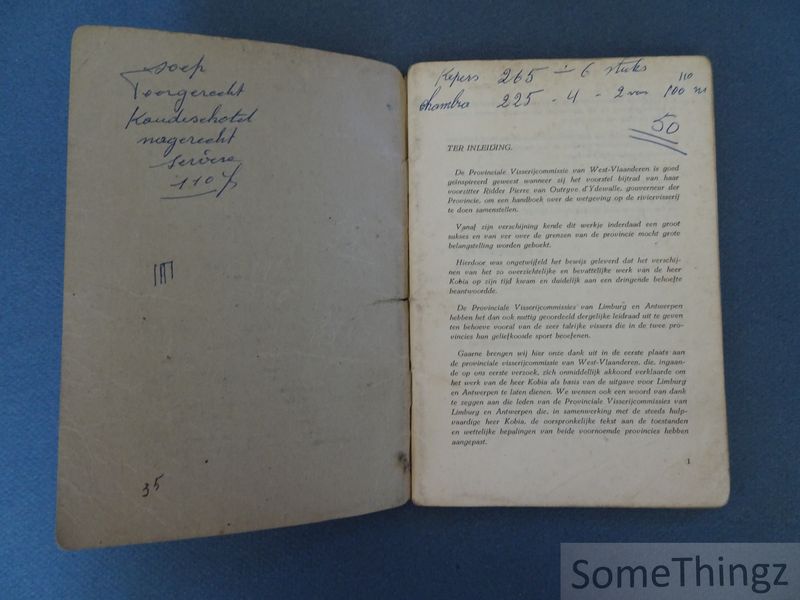 soep
Voorgerecht
Koudeschotel
nagerecht
110 f
III
35
Kepers 265 ÷ 6 stuks
chambra 225 - 4 - 2 van 100
110
50
TER INLEIDING.
De Provinciale Visserijcommissie van West-Vlaanderen is goed
geïnspireerd geweest wanneer zij het voorstel bijtrad van haar
voorzitter Ridder Pierre van Outryve d'Ydewalle, gouverneur der
Provincie, om een handboek over de wetgeving op de riviervisserij
te doen samenstellen.
Vanaf zijn verschijning kende dit werkje inderdaad een groot
sukses en van ver over de grenzen van de provincie mocht grote
belangstelling worden geboekt.
Hierdoor was ongetwijfeld het bewijs geleverd dat het verschij-
nen van het zo overzichtelijke en bevattelijke werk van de heer
Kobia op zijn tijd kwam en duidelijk aan een dringende behoefte
beantwoordde.
De Provinciale Visserijcommissies van Limburg en Antwerpen
hebben het dan ook nuttig geoordeeld dergelijke leidraad uit te geven
ten behoeve vooral van de zeer talrijke vissers die in de twee pro-
vincies hun geliefkoosde sport beoefenen.
Gaarne brengen wij hier onze dank uit in de eerste plaats aan
de provinciale visserijcommissie van West-Vlaanderen, die, ingaan-
de op ons eerste verzoek, zich onmiddellijk akkoord verklaarde om
het werk van de heer Kobia als basis van de uitgave voor Limburg
en Antwerpen te laten dienen. We wensen ook een woord van dank
te zeggen aan die leden van de Provinciale Visserijcommissies van
Limburg en Antwerpen die, in samenwerking met de steeds hulp-
vaardige heer Kobia, de oorspronkelijke tekst aan de toestanden
en wettelijke bepalingen van beide voornoemde provincies hebben
aangepast.
1
SomeThingz